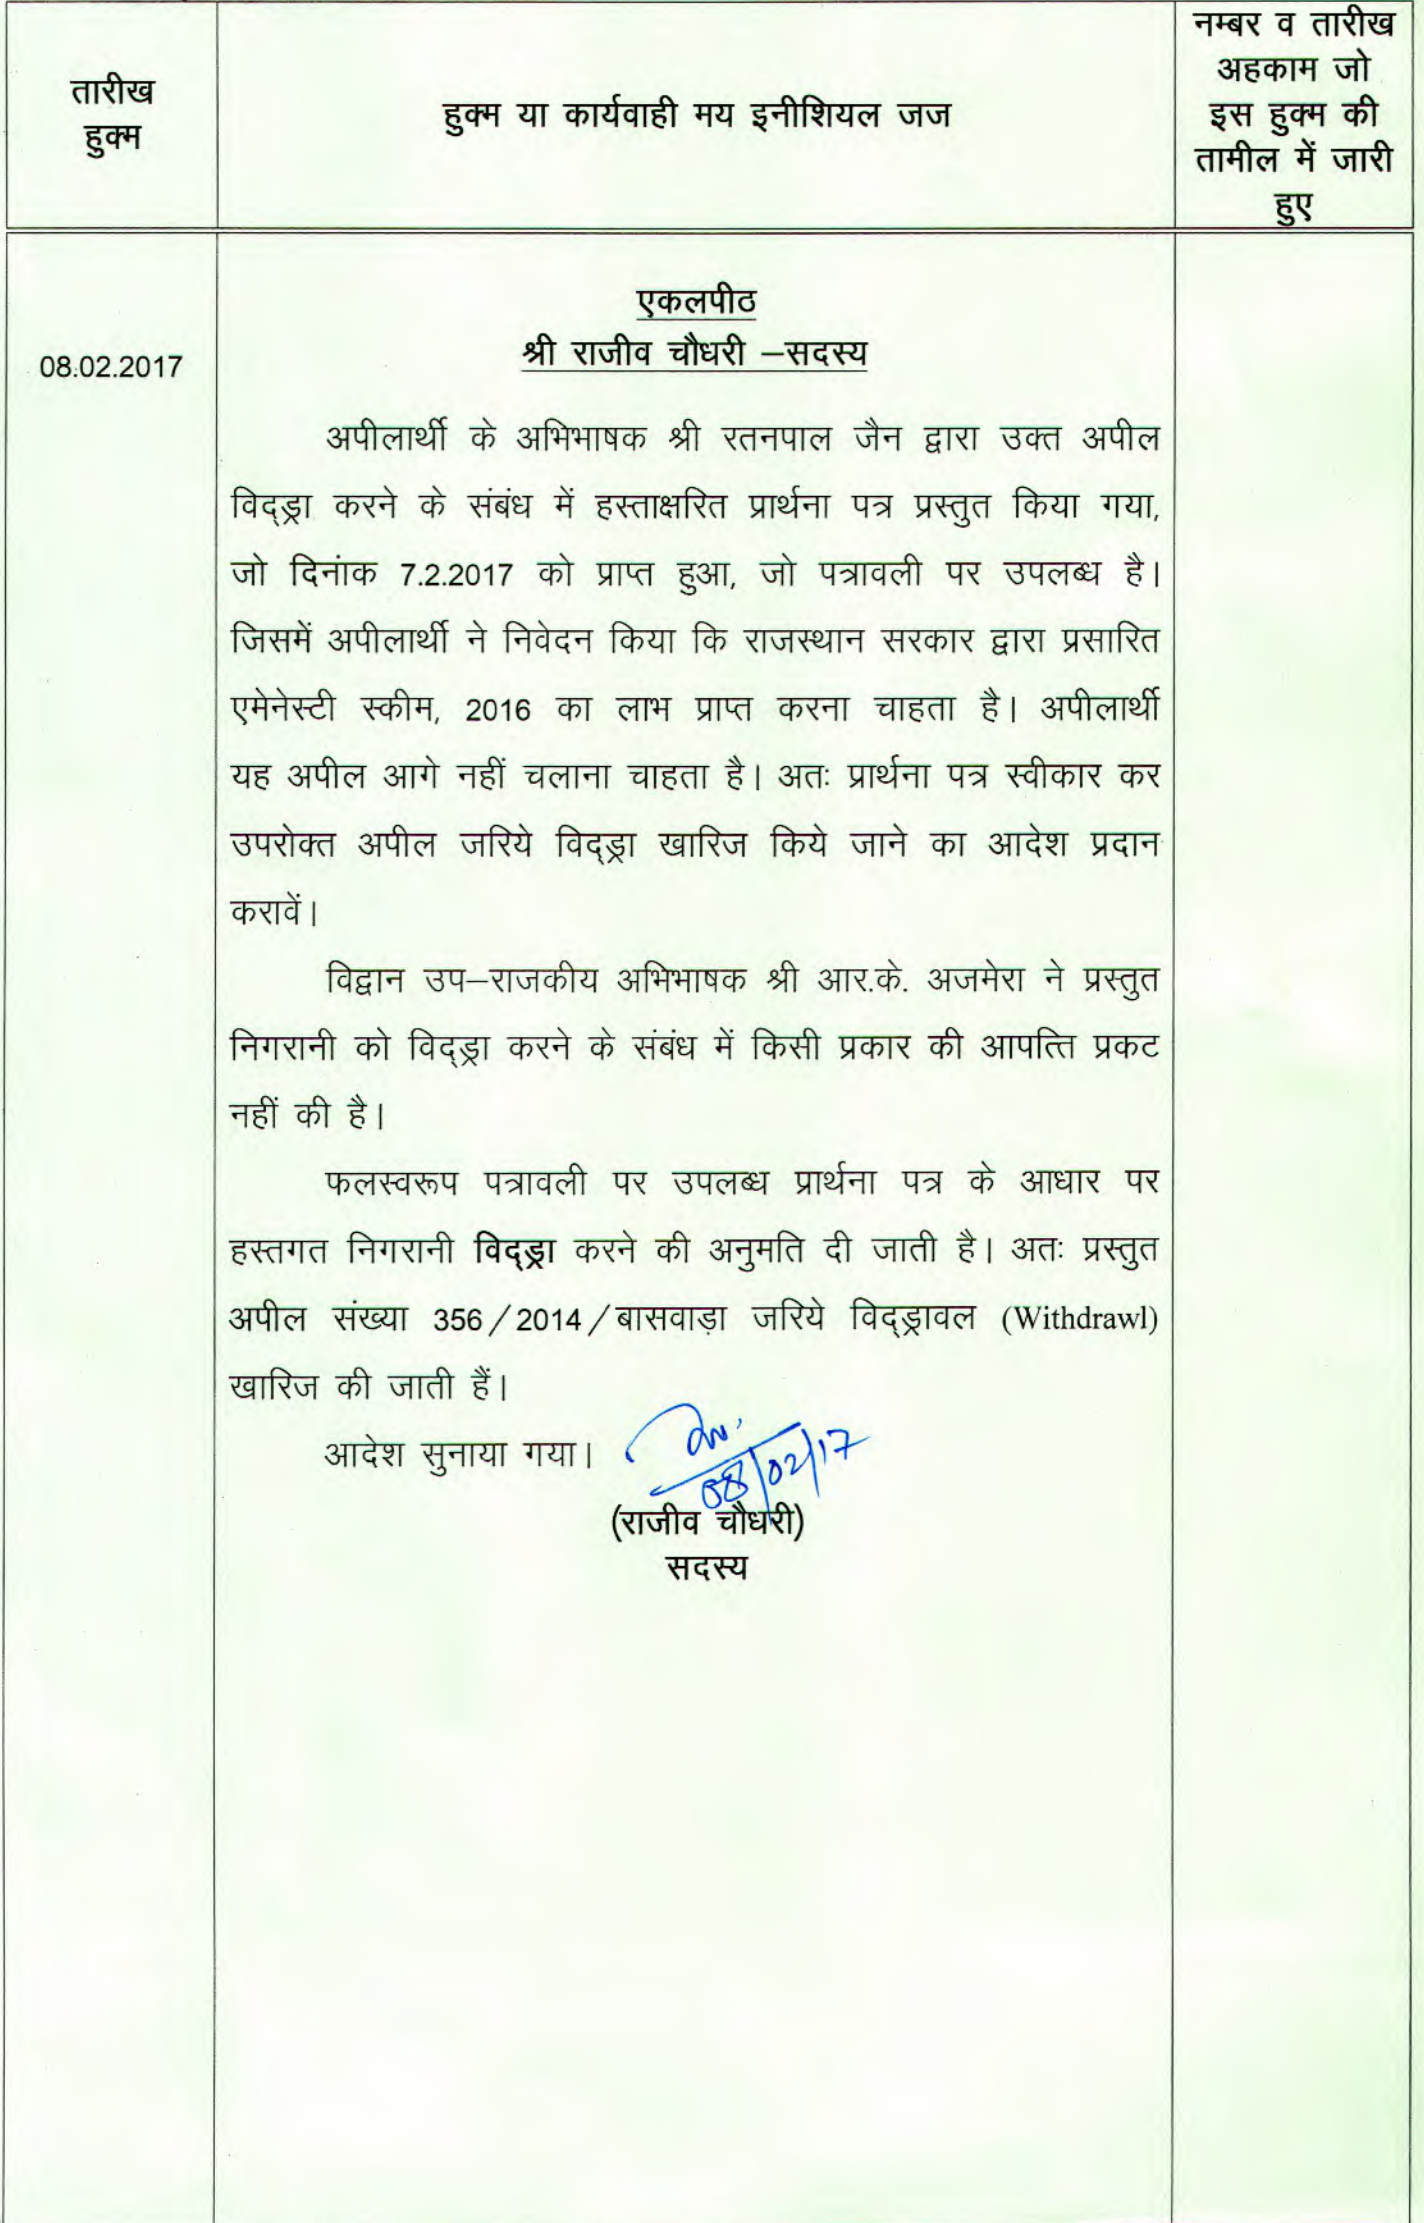 तारीख
हुक्म
हुक्म या कार्यवाही मय इनीशियल जज
नम्बर व तारीख
अहकाम जो
इस हुक्म की
तामील में जारी
हुए
08.02.2017
एकलपीठ
श्री राजीव चौधरी –सदस्य
अपीलार्थी के अभिभाषक श्री रतनपाल जैन द्वारा उक्त अपील
विद्ड्रा करने के संबंध में हस्ताक्षरित प्रार्थना पत्र प्रस्तुत किया गया,
जो दिनांक 7.2.2017 को प्राप्त हुआ, जो पत्रावली पर उपलब्ध है।
जिसमें अपीलार्थी ने निवेदन किया कि राजस्थान सरकार द्वारा प्रसारित
एमेनेस्टी स्कीम, 2016 का लाभ प्राप्त करना चाहता है। अपीलार्थी
यह अपील आगे नहीं चलाना चाहता है। अतः प्रार्थना पत्र स्वीकार कर
उपरोक्त अपील जरिये विद्ड्रा खारिज किये जाने का आदेश प्रदान
करावें।
विद्वान उप–राजकीय अभिभाषक श्री आर.के. अजमेरा ने प्रस्तुत
निगरानी को विद्ड्रा करने के संबंध में किसी प्रकार की आपत्ति प्रकट
नहीं की है।
फलस्वरूप पत्रावली पर उपलब्ध प्रार्थना पत्र के आधार पर
हस्तगत निगरानी विद्ड्रा करने की अनुमति दी जाती है। अतः प्रस्तुत
अपील संख्या 356/2014/बासवाड़ा जरिये विद्ड्रावल (Withdrawl)
खारिज की जाती हैं।
आदेश सुनाया गया।
08/02/17
(राजीव चौधरी)
सदस्य